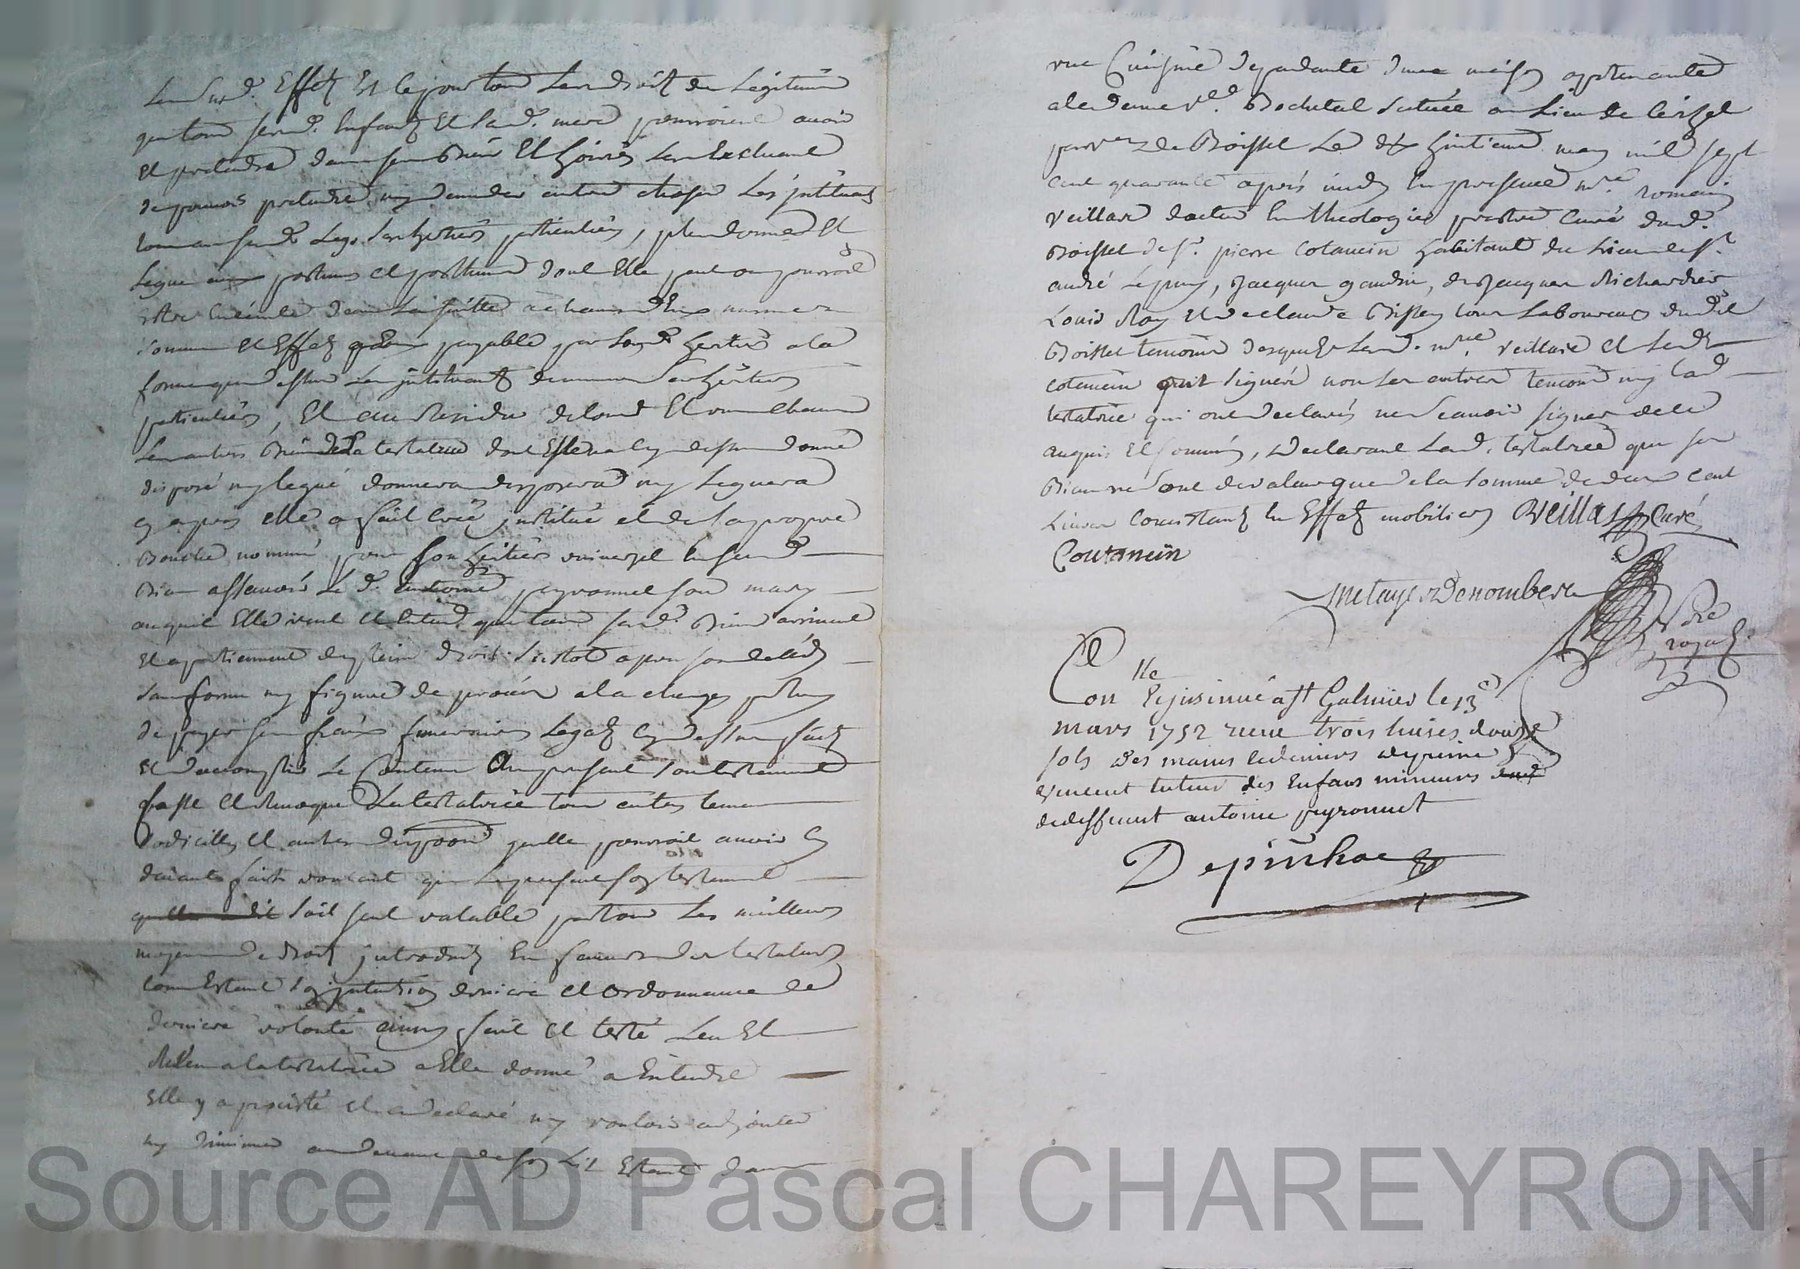 Effets Et ce pour tous Leurs droits de Légitime
que tous ses d. Enfants Et La d. mere pourroient avoir
Et pretendre dans ses Biens Et hoiries Les Excluant
de pouvoir pretendre ny demander autre chose Les jnstituant
en ses d. Legs ses hertiers particuliers, plus donne Et
Legue aux postumes et posthume dont Elle peut ou pourroit
Estre Enceinte dans La suitte a chacun d'Eux mesmes
somme Et Effets payable par Son d. hertier a la
forme que dessus Les jnstituants de mesme ses hertiers
particuliers, Et au Residu de tous Et un chacun
Les autres Biens de La testatrice dont Elle n'a cy dessus donné
disposé ny legué donnera disposera ny Leguera
cy apres elle a fait creé jnstitué et de sa propre
Bouche nommé pour son hertier universel En ses d.
Biens assavoir Le d. antoine peyronnet son mary
auquel Elle veut et Entend que tous ses d. Biens arrivent
Et apartiennent de plein droit Sitot apres son décéds
sans forme ny figure de procés a la charge par luy
de payer ses frais funeraires Legats cy dessus faits
Et d'accomplir Le Contenu Au present Son testament
Casse Et Revoque La testatrice tous autres testaments
Codicilles Et autres dispositions qu'elle pourroit avoir cy
devant faits voulant que Le present son testament
soit seul valable par tous Les meilleurs
moyens de droit jntroduits En faveur des testateurs
comme Estant Son jntention derniere et ordonnance de
derniere volonté ainsy fait et testé Leu Et
Releu a la testatrice a Elle donné a Entendre
Elle y a persisté et a declaré ny vouloir adjouter
ny diminuer au devant de son Lit Estant dans
une Cuisine dependante d'une maison appartenante
a la dame v.ve Bochetal Située au Lieu de
par.sse de Boisset Le dix huitieme may mil sept
cent quarante apres midy En presence de m.re romain
Veillas docteur En theologie prestre Curé du d.
Boisset de S.r pierre Cotancin habitant du Lieu de S.t
andré Le puy, Jacques gaudin, de Jacques Richardier
Louis Roy Et de claude Bissay tous Laboureurs du dit
Boisset temoins desquels Le d. m.re Veillas et Le d.
cotancin ont signéz non Les autres temoins ny La d.
testatrice qui ont declarés ne sçavoir signer de ce
enquis Et sommés, declarant La d. testatrice que ses
Biens ne sont de valeur que de la somme de deux cent
Livres Consistant En Effets mobiliers Veillas Curé
Coutancin
Metayer Denombert
N.re
royal
Con.lle
Et jnsinué a S.t Galmier le 13.e
mars 1752 reçu trois livres douze
sols des mains
vincent tuteur des Enfans mineurs
de deffunt antoine peyronnet
Depinhac
Source AD Pascal CHAREYRON